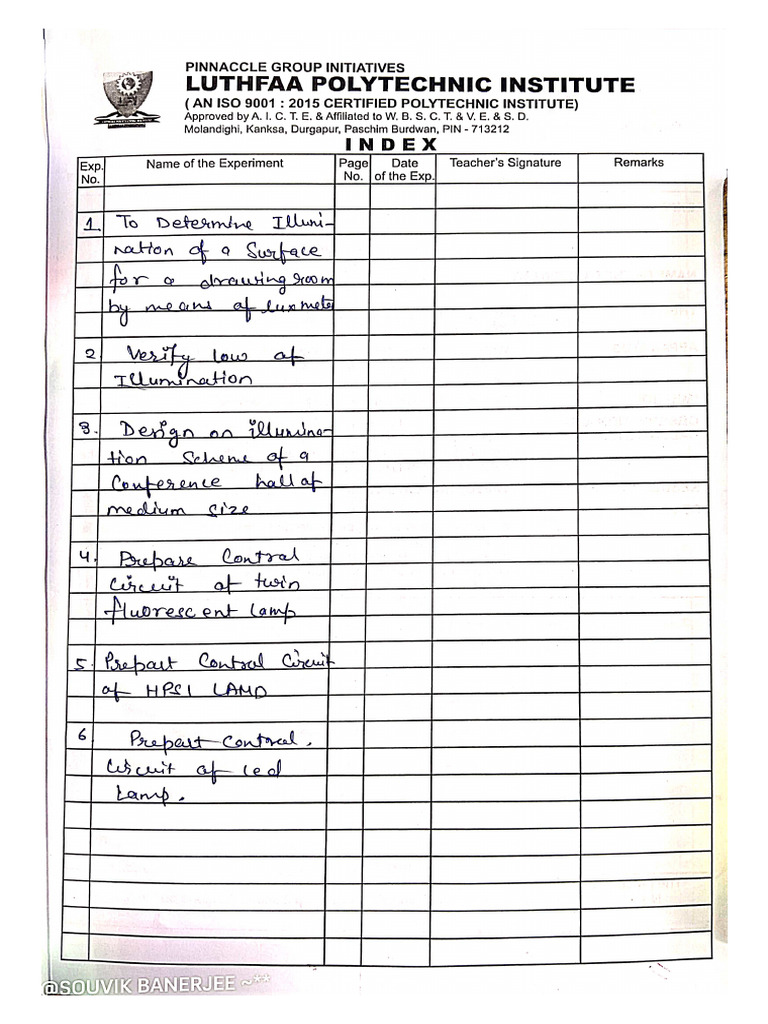 PINNACCLE GROUP INITIATIVES
LUTHFAA POLYTECHNIC INSTITUTE
( AN ISO 9001 : 2015 CERTIFIED POLYTECHNIC INSTITUTE)
Approved by A. I. C. T. E. & Affiliated to W. B. S. C. T. & V. E. & S. D.
Molandighi, Kanksa, Durgapur, Paschim Burdwan, PIN - 713212
INDEX
Exp. No. Name of the Experiment Page No. Date of the Exp. Teacher's Signature Remarks
1. To Determine Illumi-
nation of a Surface
for a drawing room
by means of luxmeter
2 Verify low of
Illumination
3. Design on illumina-
tion Scheme of a
Conference hall of
medium size
4. Prepare Control
Circuit of twin
fluorescent lamp
5. Prepart Control Circuit
of HPSI LAMP
6 Prepart Control.
Circuit of led
Lamp.
@SOUVIK BANERJEE ~**